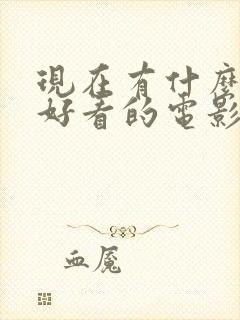 現在有什麼
好看的電影
血魘